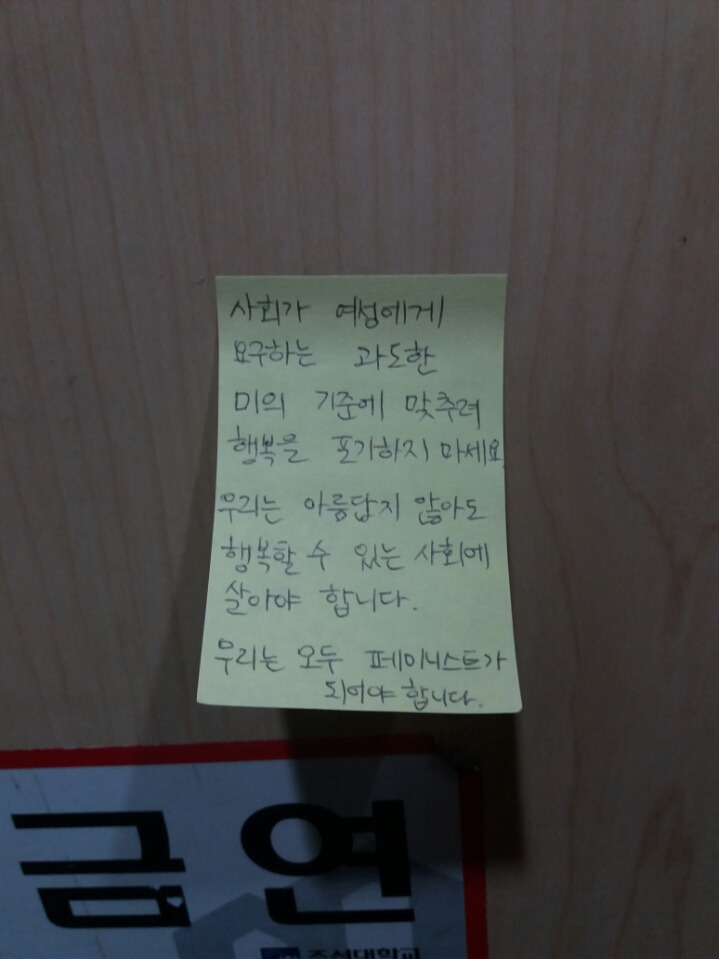 사회가 여성에게
요구하는 과도한
미의 기준에 맞추려
행복을 포기하지 마세요
우리는 아름답지 않아도
행복할 수 있는 사회에
살아야 합니다.
우리는 모두 페미니스트가
되어야 합니다.
금연
조선대학교